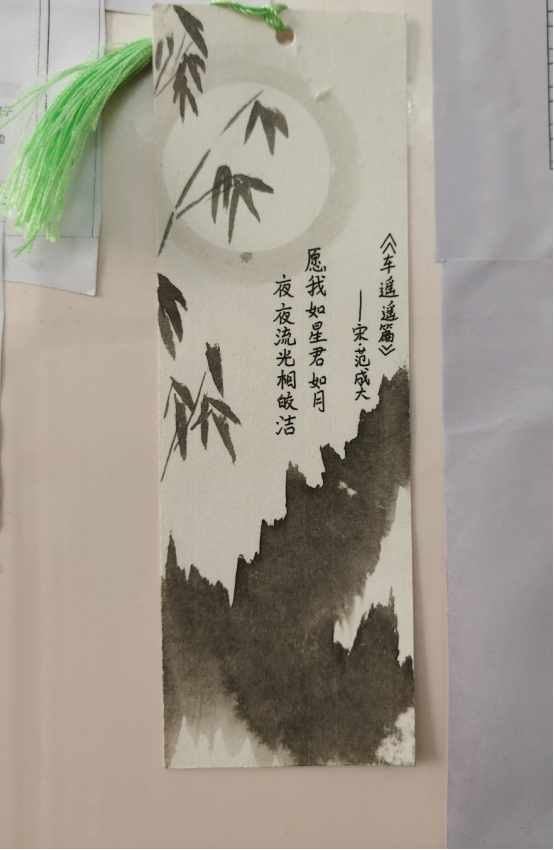 《车遥遥篇》
——宋·范成大
愿我如星君如月
夜夜流光相皎洁